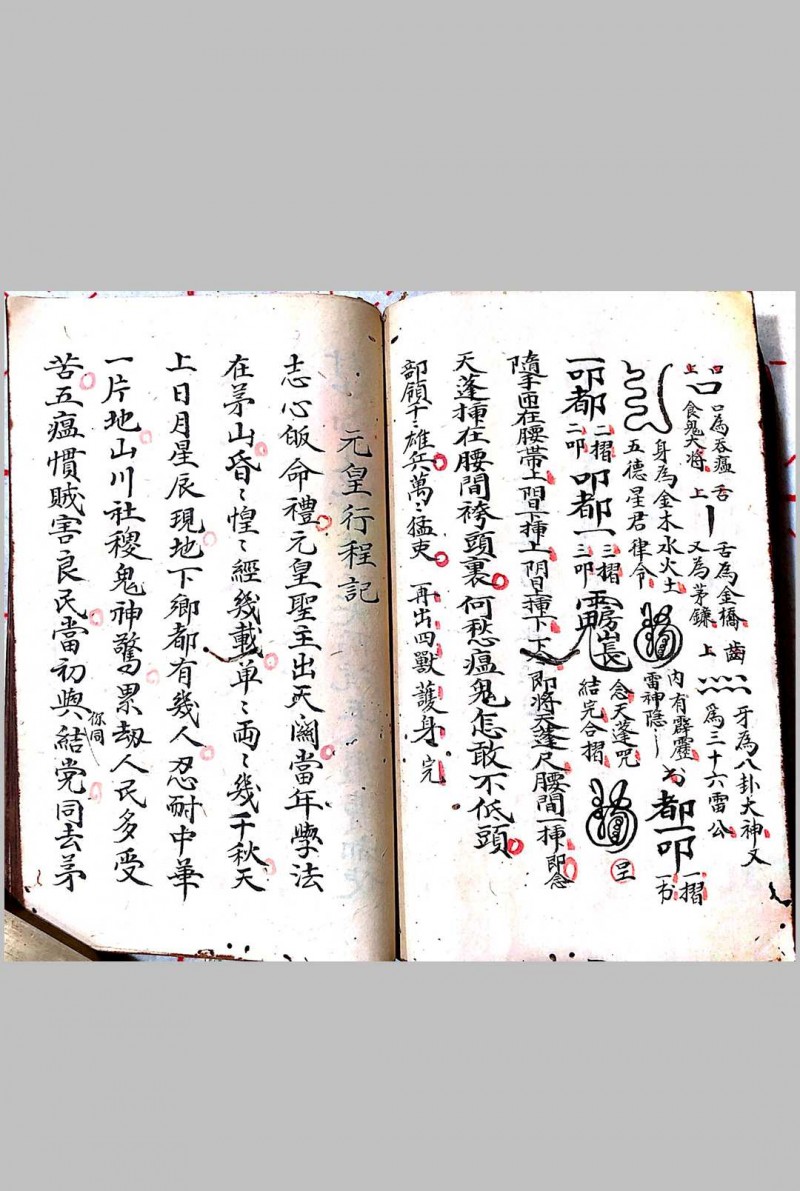 口 口為吞瘟 舌
上 食鬼大將 上 舌為金橋 齒
身為金木水火土 又為茅鐮 上 牙為八卦大神又
五德星君律令 內有霹靂 為三十六雷公
雷神隱
都 叩 一摺
叩都 二摺 二叩 叩都 三摺 三叩 念天蓬咒 結完合摺
隨手匝在腰帶上間日下揷上間日揷下上 即將天蓬尺腰間一揷即念
天蓬揷在腰間袴頭裏何愁瘟鬼怎敢不低頭
部領千〻雄兵萬〻猛吏 再出四獸護身 完
元皇行程記
志心皈命禮元皇聖主出天濶當年學法
在茅山昏〻惶〻經幾載单〻両〻幾千秋天
上日月星辰現地下鄉都有幾人忍耐中華
一片地山川社稷鬼神驚累刼人民多受
苦五瘟慣賊害良民當初與結党同去茅
你同